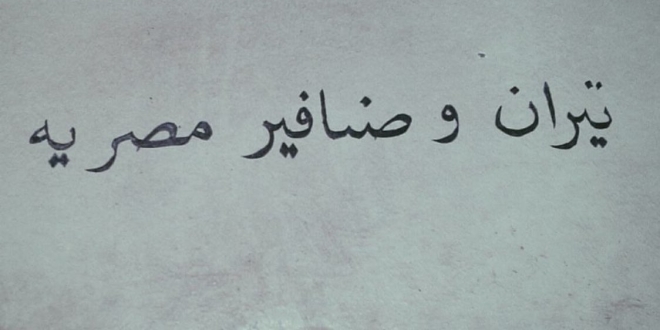 تيران و ضنافير مصريه